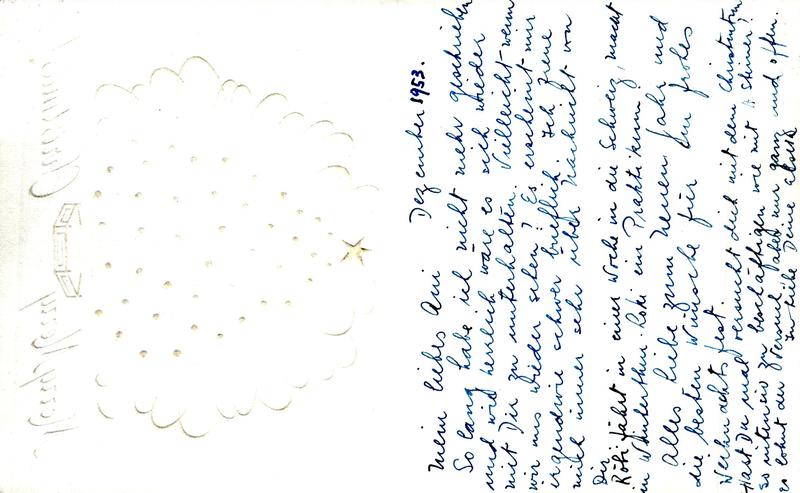 Dezember 1953.
Mein liebes Ani
So lang habe ich nicht mehr geschrieben
und wie herrlich wäre es sich wieder
mit Dir zu unterhalten. Vielleicht wenn
wir uns wieder sehen? Es erscheint mir
irgendwie schwer brieflich. Ich freue
mich immer sehr über Nachricht von
Dir.
Röbi fährt in einer Woche in die Schweiz, macht
in Winterthur ein Praktikum.
Alles Liebe zum neuen Jahr und
die besten Wünsche für ein frohes
Weihnachtsfest.
Hast Du mal versucht dich mit dem Christentum
so intensiv zu beschäftigen wie mit Steiner?
es lohnt der Versuch, aber nur ganz und offen.
In Liebe Deine